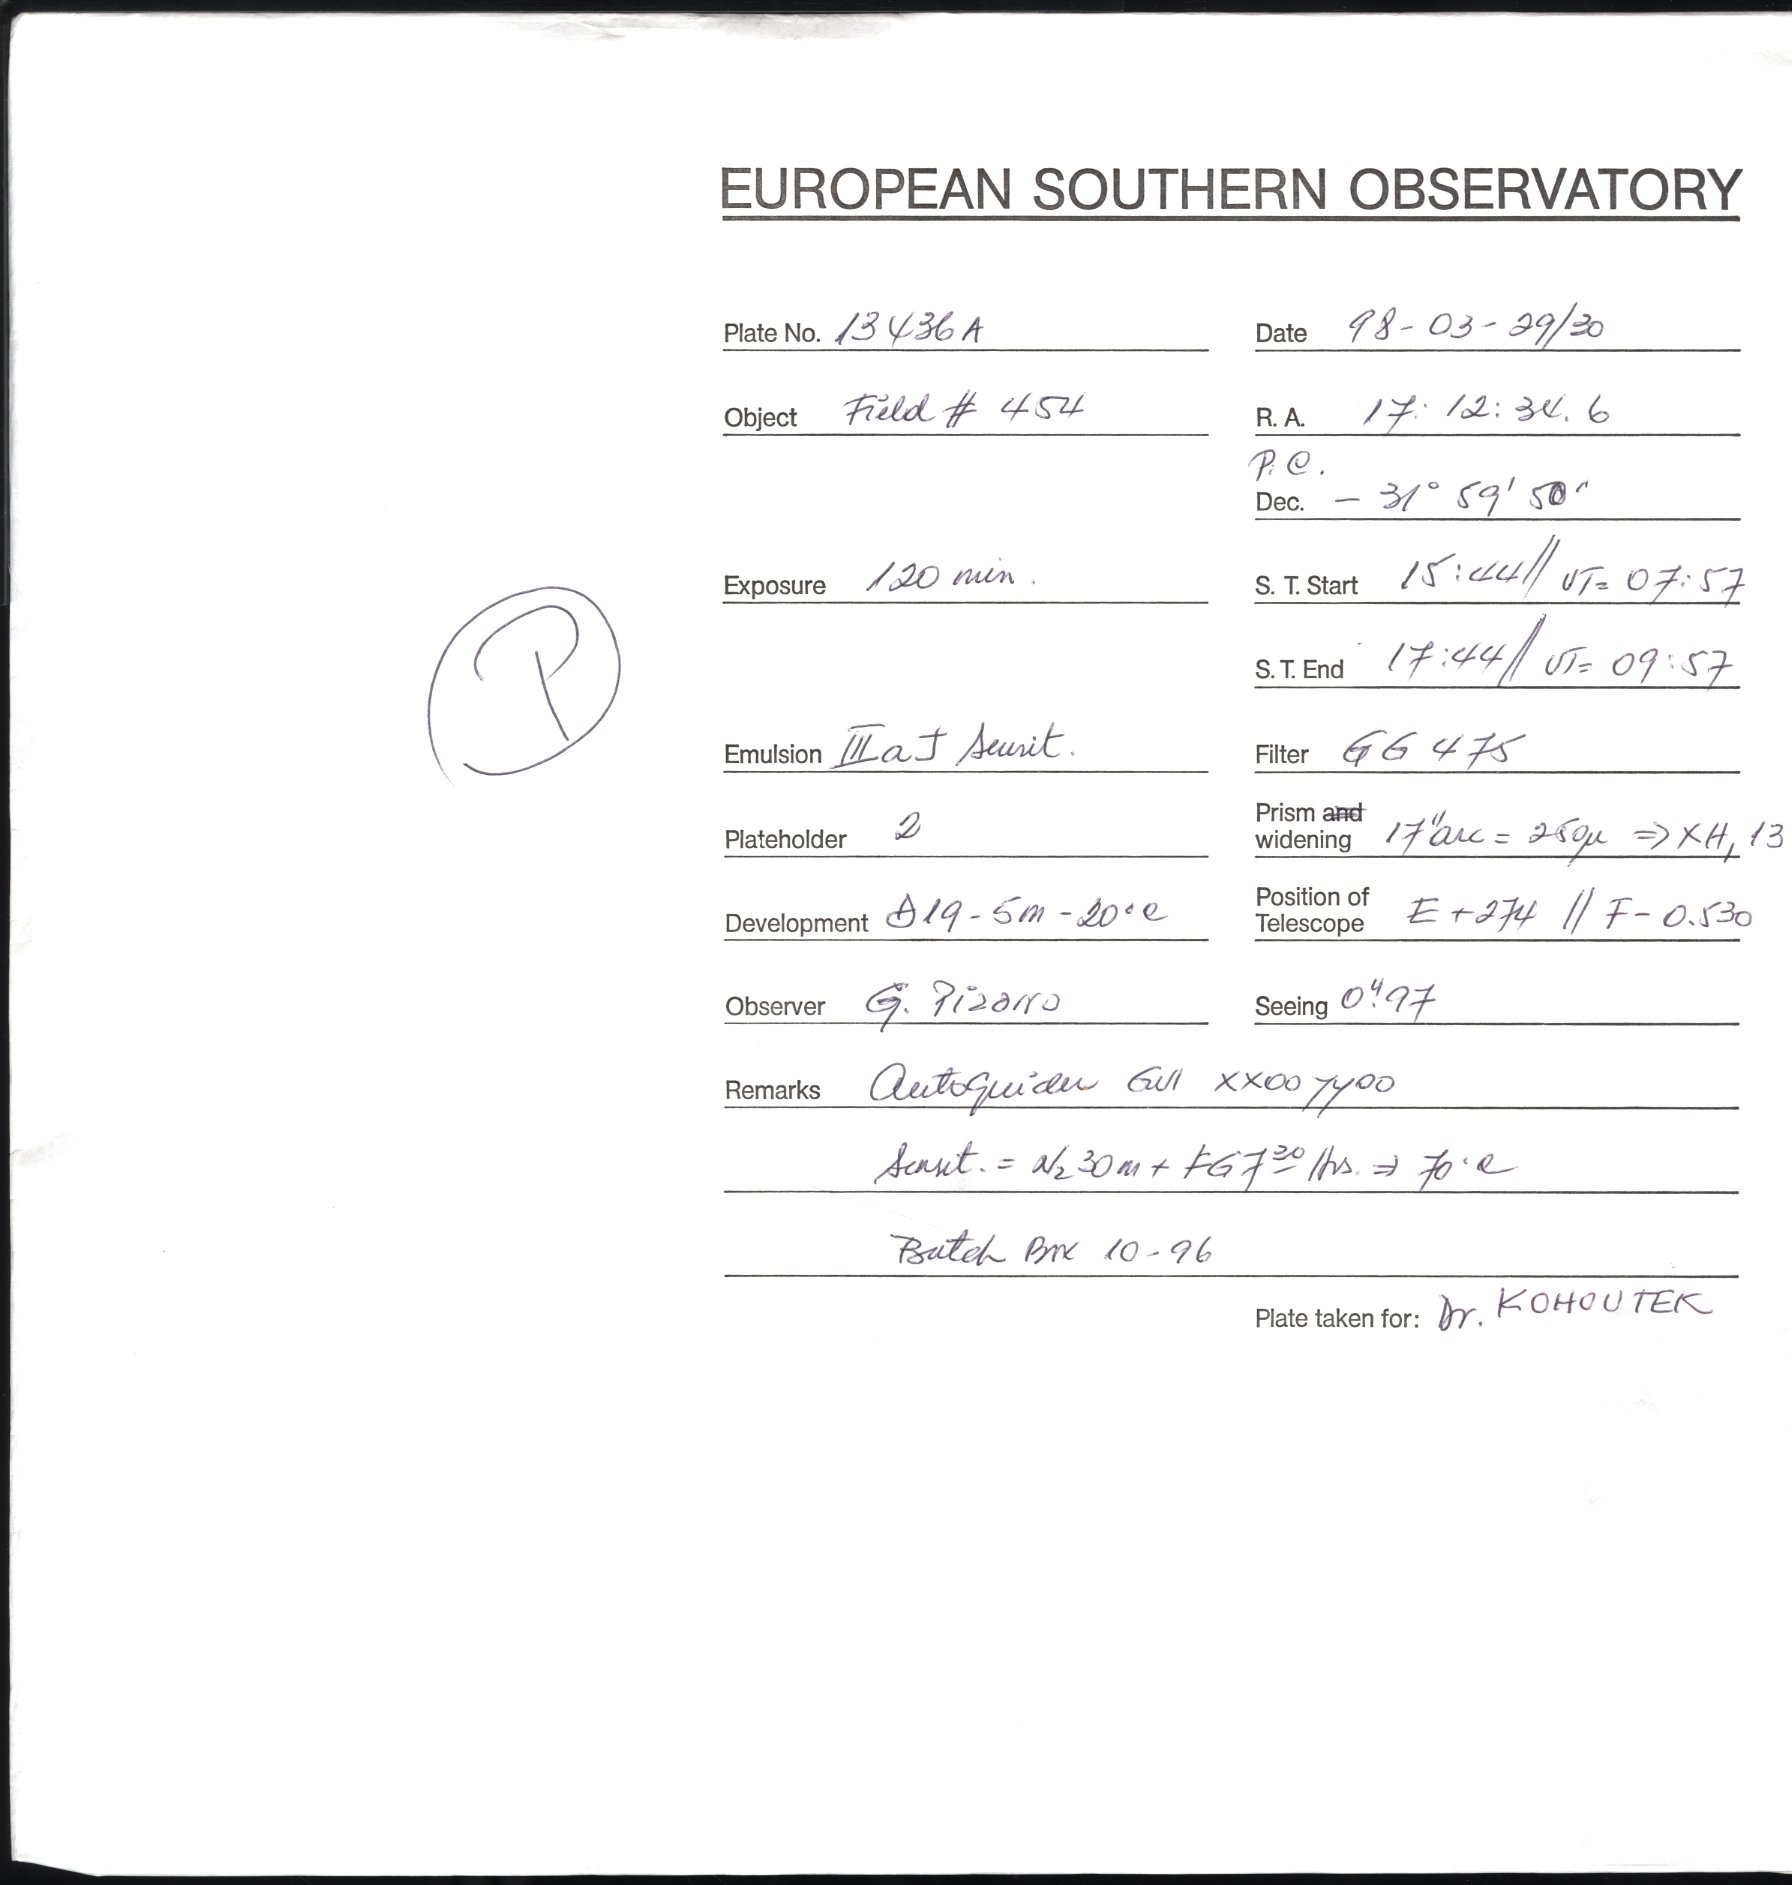 EUROPEAN SOUTHERN OBSERVATORY
Plate No. 13436A Date 98-03-29/30
Object Field # 454 R. A. 17: 12: 34. 6
P.C.
Dec. - 31° 59' 50"
Exposure 120 min. S. T. Start 15:44// UT= 07:57
S. T. End 17:44// UT= 09:57
P
Emulsion IIIaJ Sensit. Filter GG 475
Prism and
Plateholder 2 widening 17" arc = 250µ => XH, 13
Position of
Development D19-5m-20°C Telescope E+274 // F-0.530
Observer G. Pizarro Seeing 0".97
Remarks Autoguider GVI XX00 YY00
Sensit. = N2 30m + FG 7 30 Hrs. => 70°C
Batch Box 10-96
Plate taken for: Dr. KOHOUTEK